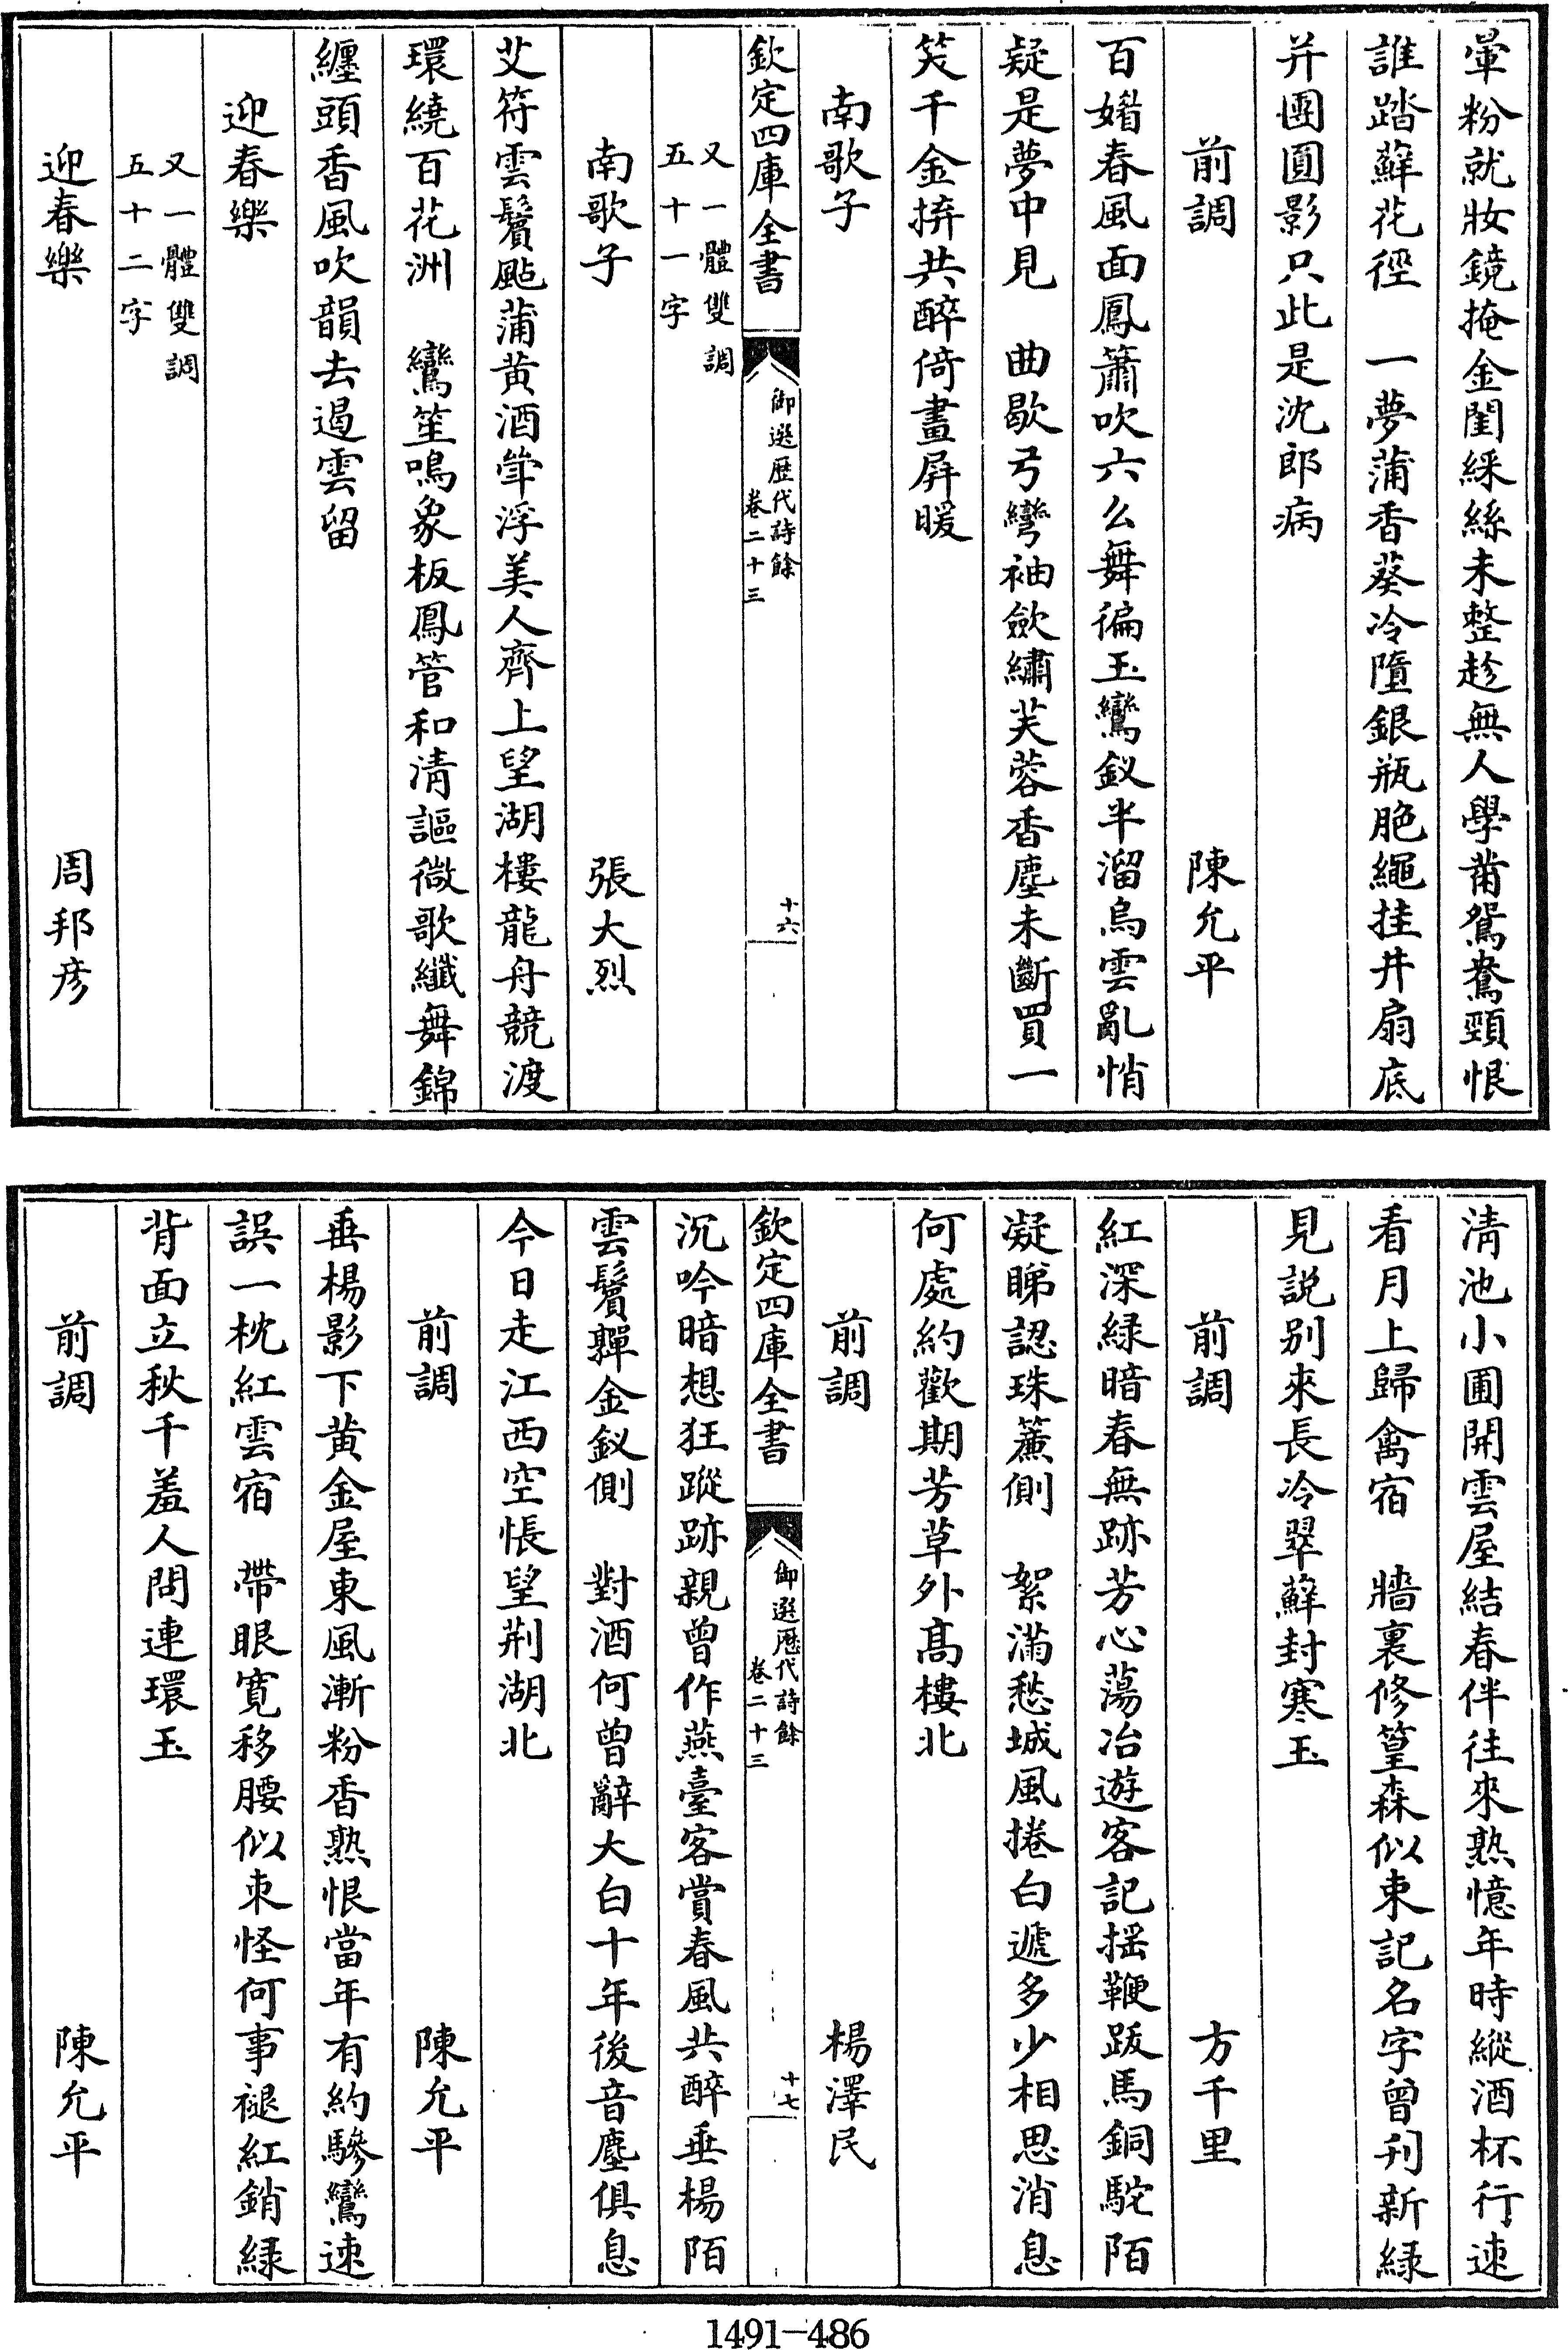 暈粉就妝鏡掩金閨綵絲未整趁無人學繡鴛鴦頸恨
誰踏蘚花徑　一夢蒲香葵冷墮銀瓶脆繩挂井扇底
并團圓影只此是沈郎病
前調　陳允平
百媚春風面鳳簫吹六么舞徧玉鸞釵半溜烏雲亂悄
疑是夢中見　曲歇弓彎袖歛繡芙蓉香塵未斷買一
笑千金拚共醉倚畫屏暖
南歌子
欽定四庫全書
御選歴代詩餘
卷二十三
十六
又一體雙調
五十一字
南歌子　張大烈
艾符雲鬢颭蒲黄酒斝浮美人齊上望湖樓龍舟競渡
環繞百花洲　鸞笙鳴象板鳳管和清謳㣲歌纖舞錦
纏頭香風吹韻去遏雲留
迎春樂
又一體雙調
五十二字
迎春樂　周邦彦
清池小圃開雲屋結春伴往來熟憶年時縱酒杯行速
看月上歸禽宿　牆裏修篁森似束記名字曾刋新緑
見説别來長冷翠蘚封寒玉
前調　方千里
紅深緑暗春無跡芳心蕩冶遊客記揺鞭跋馬銅駝陌
凝睇認珠簾側　絮滿愁城風捲白遞多少相思消息
何處約歡期芳草外髙樓北
前調　楊澤民
欽定四庫全書
御選歴代詩餘
卷二十三
十七
沉吟暗想狂蹤跡親曾作燕臺客賞春風共醉垂楊陌
雲鬢嚲金釵側　對酒何曾辭大白十年後音塵俱息
今日走江西空悵望荆湖北
前調　陳允平
垂楊影下黄金屋東風漸粉香熟恨當年有約驂鸞速
誤一枕紅雲宿　帶眼寛移腰似束怪何事褪紅銷緑
背面立秋千羞人問連環玉
前調　陳允平
1491-486